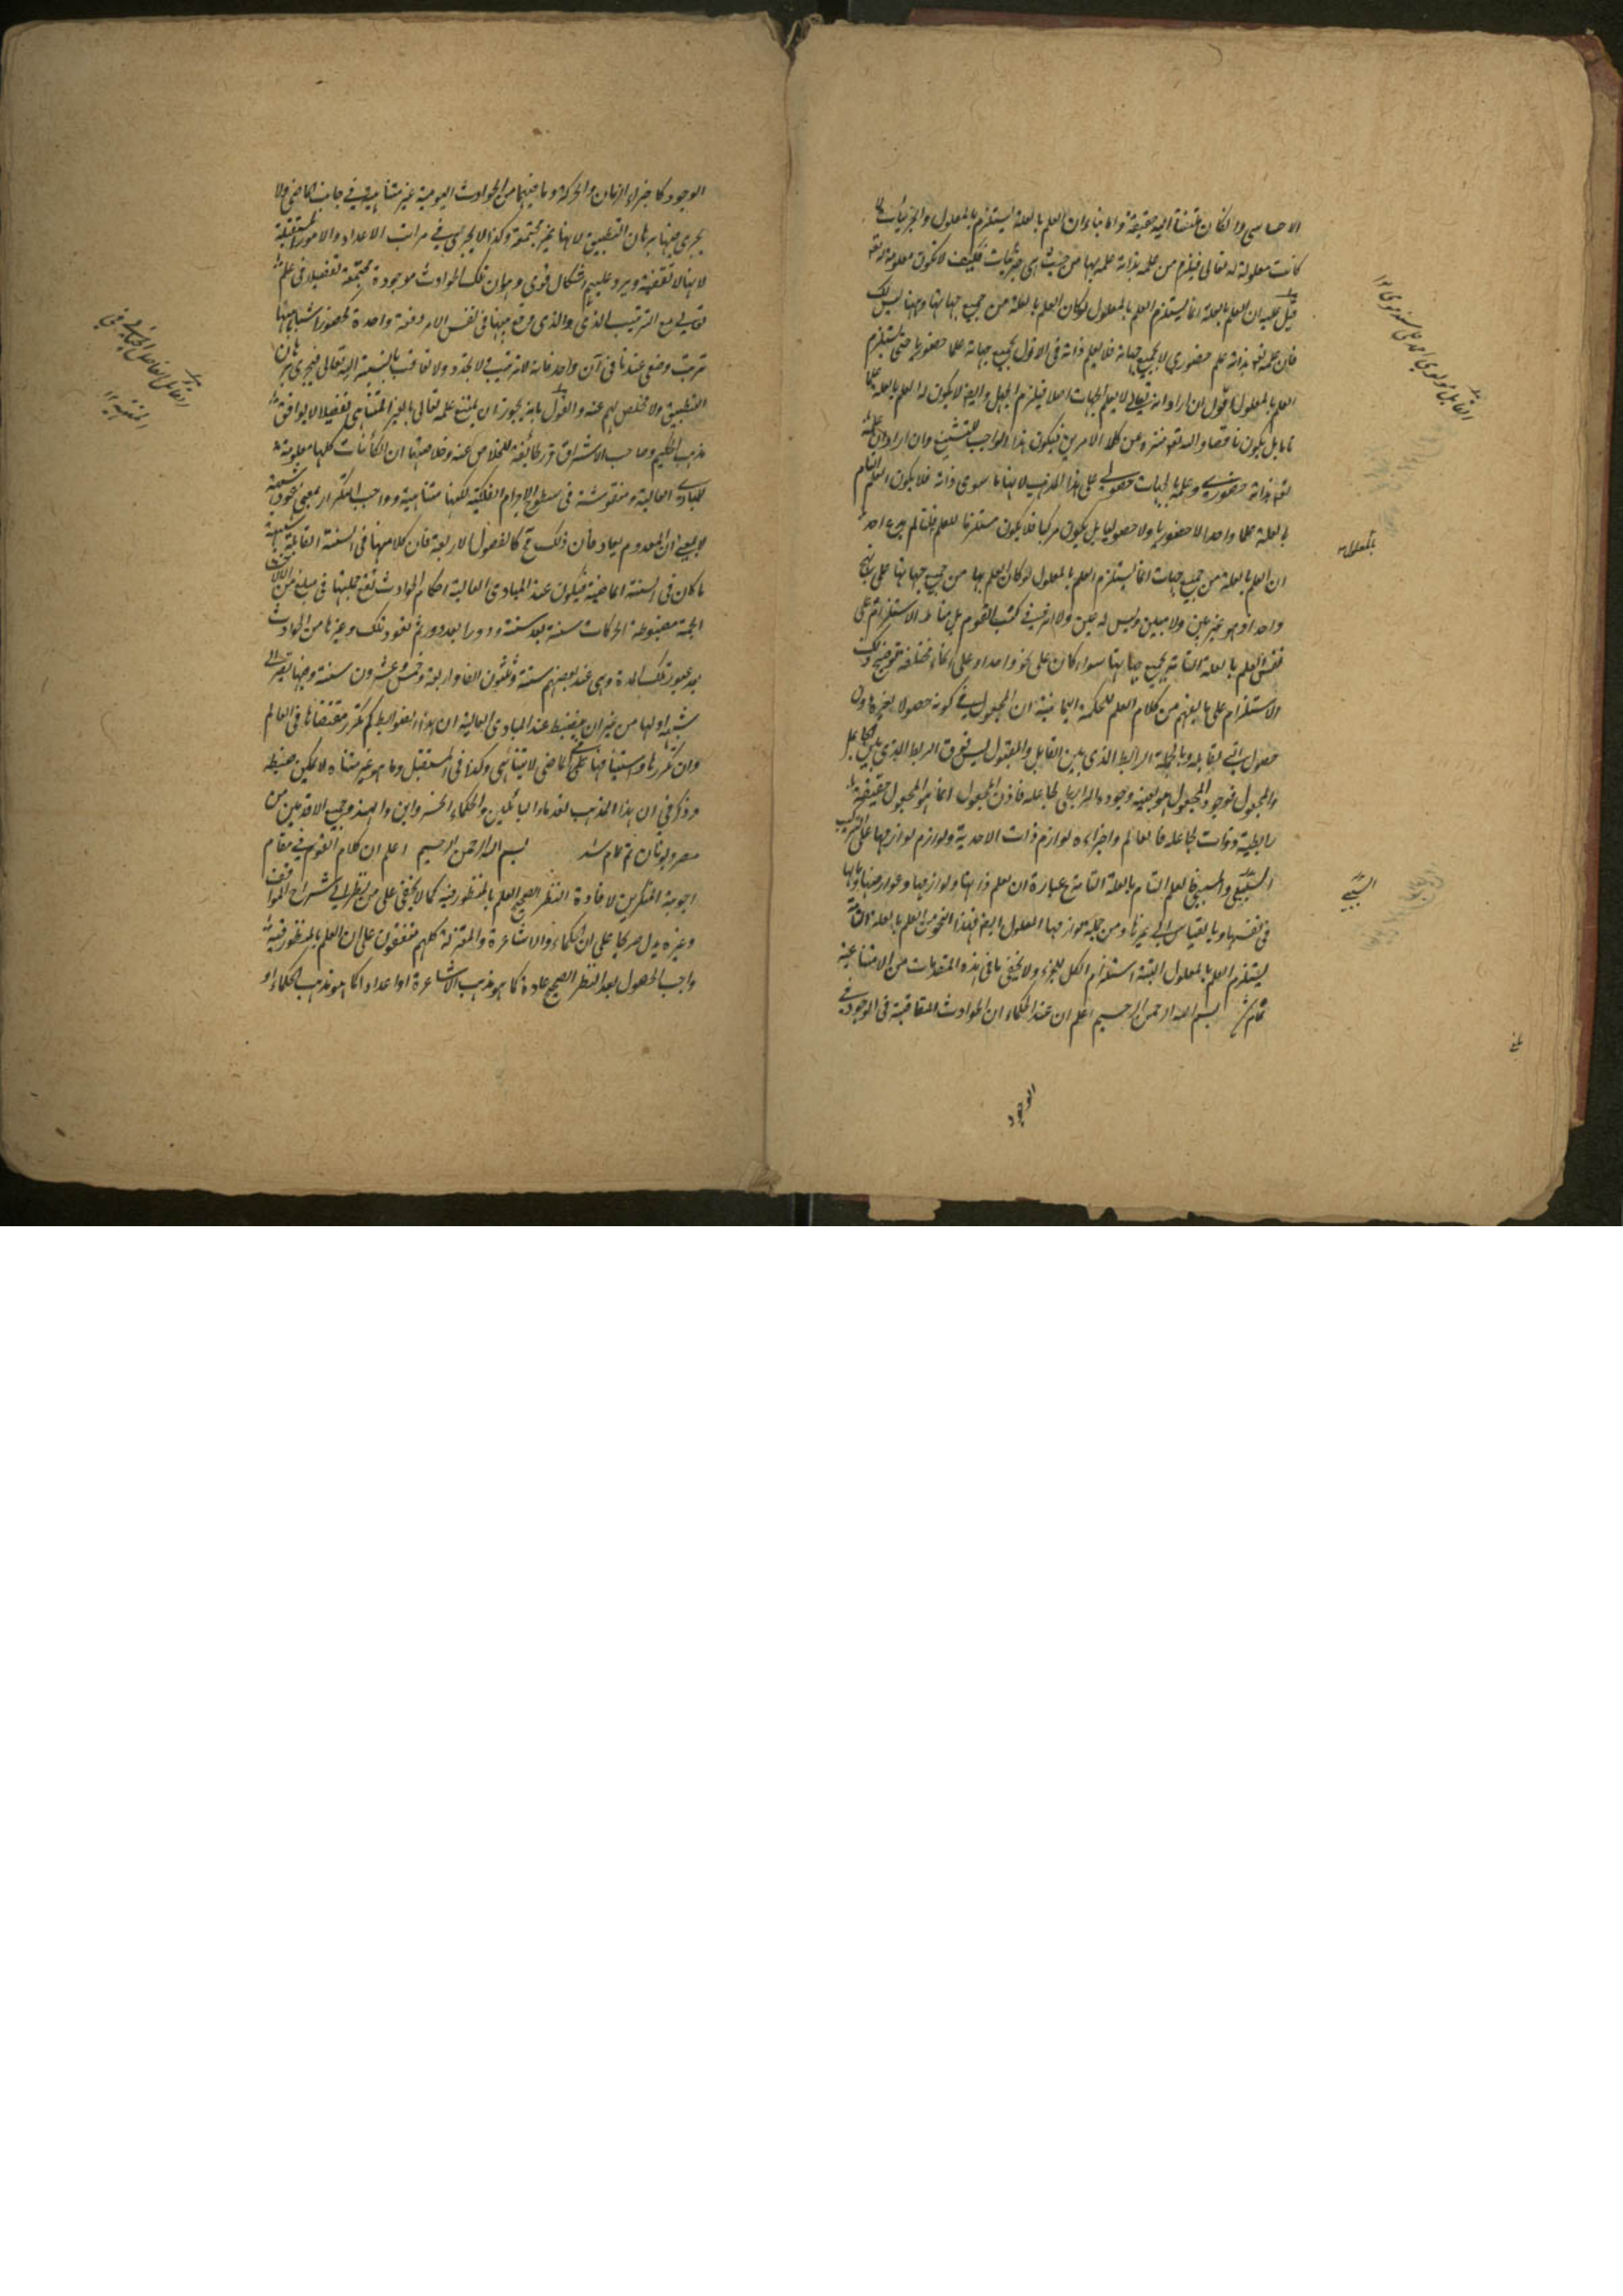 الاحساسى وان كان ملتفتا اليه حقيقة واما بناء ان العلم بالعلة يستلزم بالمعلول والجزئيات لما
كانت معلولة له تعالى فيلزم من علمه بذاته علمه بها من حيث هى جزئيات فكيف لا تكون معلومة له تع
قيل عليه ان العلم بالعلة انما يستلزم العلم بالمعلول لو كان العلم بالعلة من جميع جهاتها وههنا ليس كك
فان علمه تع بذاته علم حضورى لا بجميع جهاته فلا يعلم ذاته فى الازل بجميع جهاته علما حضوريا حتى يستلزم
العلم بالمعلول اقول ان اراد انه تعالى لا يعلم الجهات اصلا فيلزم الجهل وايضا لا يكون له العلم بالعلة علما
تاما بل يكون ناقصا والله تع منزه عن كلا الامرين فيكون هذا الواجب للتشنيع وان اراد ان علمه
تع بذاته حضورى وعلمه بالجهات حصولى على هذا المذهب لانها ما سوى ذاته فلا يكون العلم التام
بالعلة علما واحدا لا حضوريا ولا حصوليا بل يكون مركبا فلا يكون مستلزما للعلم قلت لم يدع احد
ان العلم بالعلة من جميع جهات انما يستلزم العلم بالمعلول لو كان العلم بها من جميع جهاتها على نهج
واحد او هو غير بين ولا مبين وليس له عين ولا اثر فى كتب القوم بل مناط الاستلزام على
نفس العلم بالعلة التامة بجميع جهاتها سواء كان على نحو واحد او على انحاء مختلفة توضيح ذلك
والاستلزام على ما يفهم من كلام المعلم للحكمة اليمانية ان المجعول فى كونه حصولا لغيره دون
حصول الشئ لقابله وبالجملة الرابط الذى بين القابل والمقبول ليس فوق الربط الذى بين الجاعل
والمجعول فوجود المجعول هو بعينه وجوده الرابطى لجاعله فاذن المجعول انما هو المجعول حقيقة
رابطية وذات لجاعله فالعالم واجزاءه لوازم ذات الاحدية ولوازم لوازمها على الترتيب
السببى والمسببى فالعلم التام بالعلة التامة عبارة ان يعلم ذاتها ولوازمها وعوارضها ومالها
فى نفسها وبالقياس الى غيرها ومن جملة لوازمها المعلول ايضا فهذا النحو من العلم بالعلة التامة
يستلزم العلم بالمعلول البتة استلزام الكل للجزء ولا يخفى ما فى هذه المقدمات من الاقناعية
تمام شد بسم الله الرحمن الرحيم اعلم ان عند الحكماء ان الحوادث المتعاقبة فى الوجود فى
الوجود
القائل مولوى احمد على سنديلوى ١٢
بالمعلول
السببى
الوجود كاجزاء الزمان والحركة وما فيهما من الحوادث اليومية غير متناهية فى جانب الماضى ولا
يجرى فيها برهان التطبيق لانها غير مجتمعة وكذا لا يجرى فى مراتب الاعداد والامور المستقبلة
لانها لا تقفية ويرد عليهم اشكال قوى وهو ان تلك الحوادث موجودة مجتمعة تفصيلا فى علمه
تعالى مع الترتيب الذى والذى هو ههنا فى نفس الامر دفعة واحدة لحضور اشياء بينها
ترتب وضعى عندنا فى آن واحد فانه لا ترتيب ولا تجدد ولا تعاقب بالنسبة اليه تعالى فيجرى برهان
التطبيق ولا مخلص لهم عنه والقول بانه يجوز ان يمتنع علمه تعالى بالغير المتناهى تفصيلا لا يوافق
مذهب الحكيم وصاحب الاشراق قرر طائفة للخلاص عنه وخلاصتها ان الكائنات كلها معلومة
للمبادى العالية ومنقوشة فى سطوح الاجرام الفلكية لكنها متناهية وواجب التكرار بمعنى عود شبيهه
لا بمعنى ان المعدوم يعاد فان ذلك مح كالفصول الاربعة فان كلا منها فى السنة القابلة شبيهة
ما كان فى السنة الماضية فيكون عند المبادى العالية احكام الحوادث تقع جملتها فى مبلغ من الآلاف
الجمة مضبوطة الحركات سنة بعد سنة ودورا بعد دور ثم تعود تلك وغيرها من الحوادث
بعد عبور تلك المدة وهى عند بعضهم ستة وثلثون الفا واربعة وخمس وعشرون سنة وفيها تقرر الى
شبه اولها من غير ان ينضبط عند المبادى العالية ان هذه الضوابط كم تكرر مقتضاها فى العالم
وان تكررها واستينافها على الماضى لا يتناهى وكذا فى المستقبل وما هو غير متناه لا يمكن ضبطه
وذكر فى ان هذا المذهب لقدماء البابليين والحكماء الخسروانين والهند وجميع الاقدمين من
مصر ويونان تم تمام شد بسم الله الرحمن الرحيم اعلم ان كلام القوم فى مقام
اجوبة المنكرين لافادة النظر الصحيح العلم بالمنظور فيه كما لا يخفى على من نظر الى شراح المواقف
وغيره يدل صريحا على ان الحكماء والاشاعرة والمعتزلة كلهم متفقون على ان العلم بالمنظور فيه
واجب الحصول بعد النظر الصحيح عادة كما هو مذهب الاشاعرة او اعدادا كما هو مذهب الحكماء او